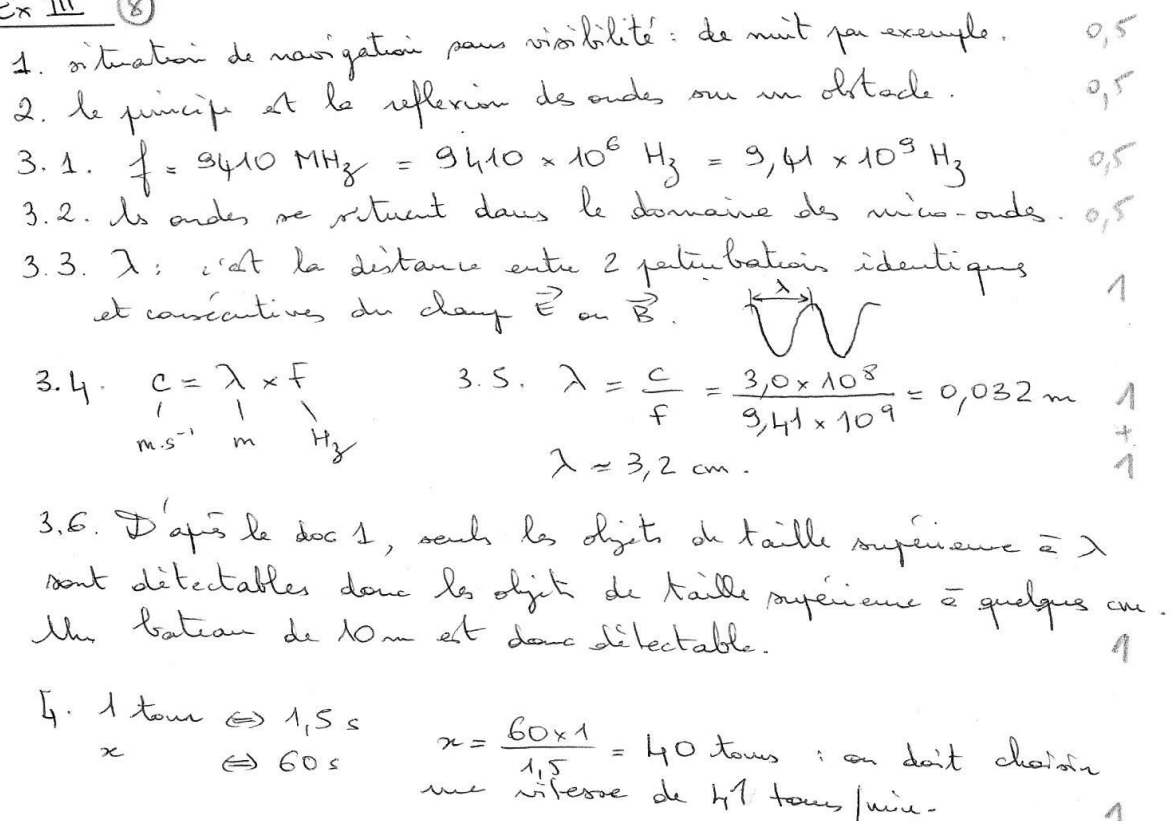 Ex III 8
1. situation de navigation sans visibilité : de nuit par exemple. 0,5
2. le principe est la réflexion des ondes sur un obstacle. 0,5
3.1. f = 9410 MHz = 9410 × 10⁶ Hz = 9,41 × 10⁹ Hz 0,5
3.2. les ondes se situent dans le domaine des micro-ondes. 0,5
3.3. λ : c'est la distance entre 2 perturbations identiques
et consécutives du champ E⃗ ou B⃗. λ 1
3.4. c = λ × f 3.5. λ = c/f = 3,0 × 10⁸ / 9,41 × 10⁹ = 0,032 m 1
m.s⁻¹ m Hz +
λ ≈ 3,2 cm. 1
3.6. D'après le doc 1, seuls les objets de taille supérieure à λ
sont détectables donc les objets de taille supérieure à quelques cm.
Un bateau de 10 m est donc détectable. 1
4. 1 tour ⇔ 1,5 s
x ⇔ 60 s x = 60×1 / 1,5 = 40 tours : on doit choisir
une vitesse de 41 tours/min. 1